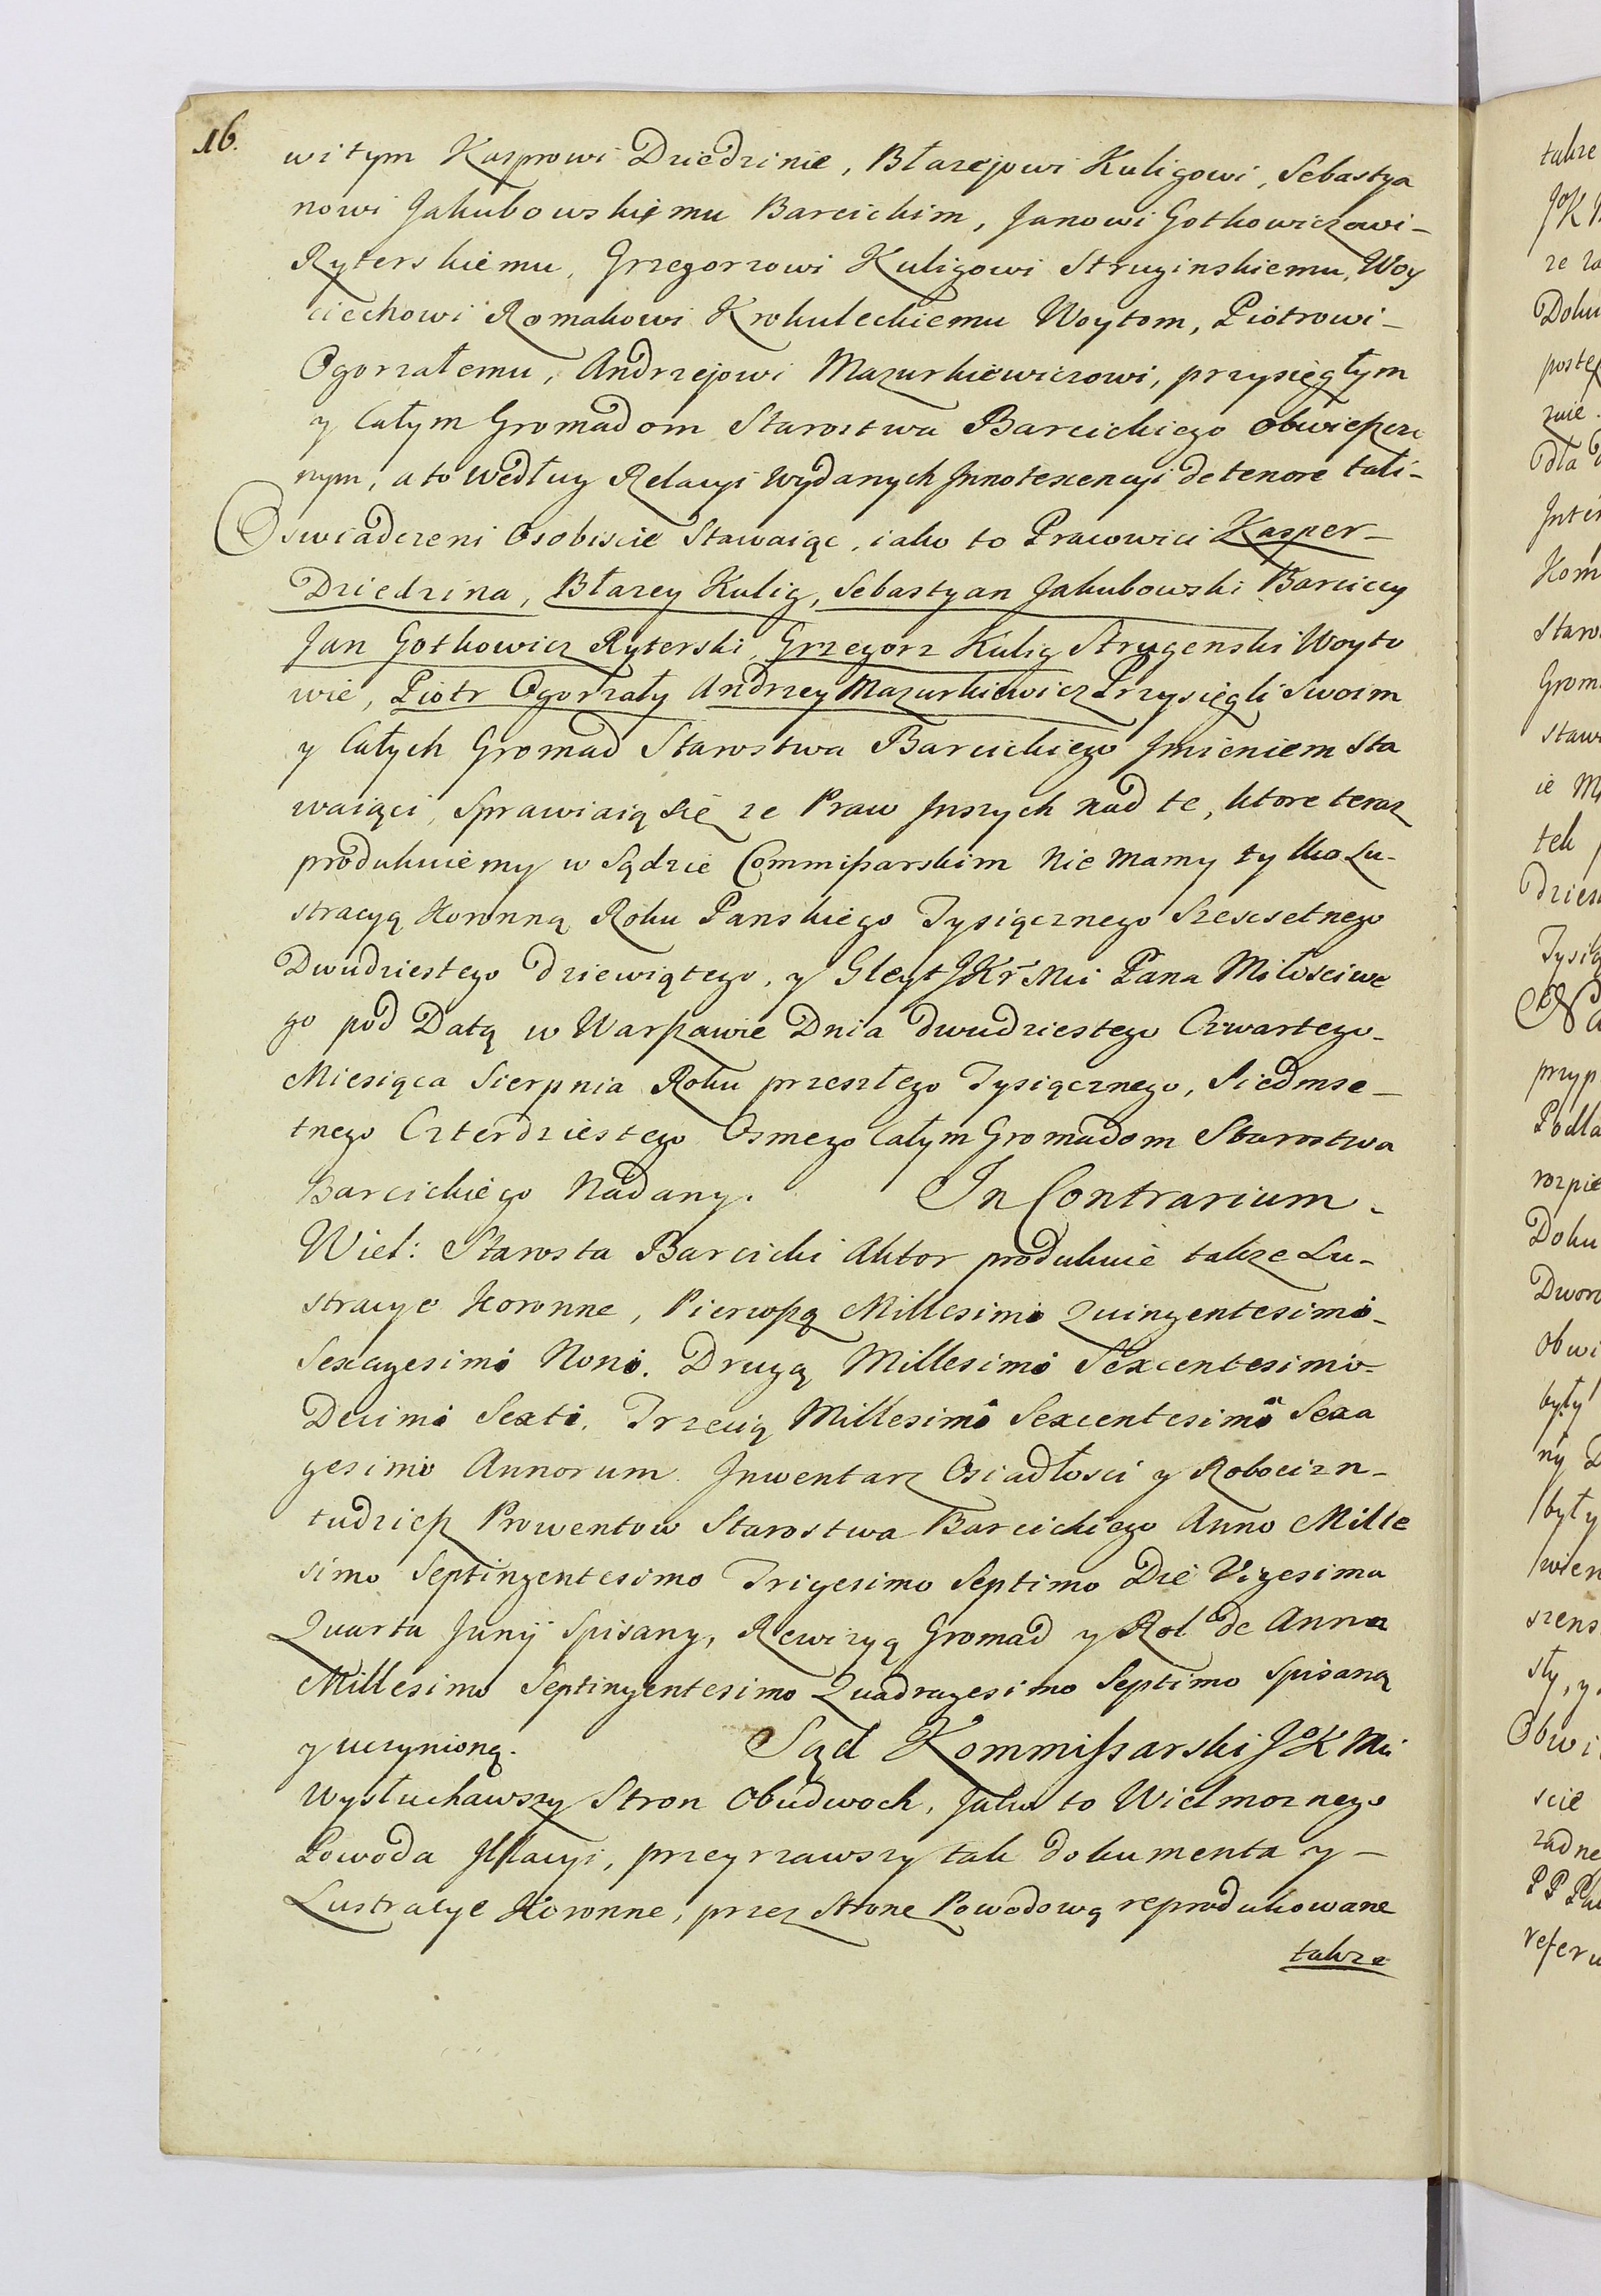 16.
witym Kasprowi Dziedzinie, Błazejowi Kuligowi, Sebastya
nowi Jakubowskiemu Barcickim, Janowi Gotkowiczowi –
Ryterskiemu, Grzegorzowi Kuligowi Struginskiemu, Woy
ciechowi Romakowi Krokuleckiemu Woytom, Piotrowi –
Ogorzałemu, Andrzejowi Mazurkiewiczowi, przysięgłym
y Całym Gromadom Starostwa Barcickiego obwieszczo
nym, a to według Relacyi wydanych Jnnotescencyi de tenore tali –
Oswiadczeni Osobiscie Stawaiąc, iako to Pracowici Kasper –
Dziedzina, Błazey Kulig, Sebastyan Jakubowski Barciccy
Jan Gotkowicz Ryterski, Grzegorz Kulig Strugenski Woyto
wie, Piotr Ogorzały Andrzey Mazurkiewicz Przysięgli Swoim
y Całych Gromad Starostwa Barcickiego Jmieniem Sta
waiąci, Sprawiaią się ze Praw Jnszych nad te, ktore teraz
produkuiemy w Sądzie Commissarskim nie mamy tylko Lu-
stracyą Koronną Roku Panskiego Tysiącznego Szescsetnego
Dwudziestego dziewiątego, y Gleyt JKr Mci Pana Miłosciwe
go pod Datą w Warszawie Dnia dwudziestego Czwartego –
Miesiąca Sierpnia Roku przeszłego Tysiącznego, Siedmse –
tnego Czterdziestego Osmego Całym Gromadom Starostwa
Barcickiego Nadany. In Contrarium.
Wiel: Starosta Barcicki Aktor produkuie takze Lu-
stracye Koronne, Pierwszą Millesimi Quingentesimi –
Sexagesimi Noni. Drugą Millesimi Sexcentesimi –
Decimi Sexti. Trzecią Millesimi Sexcentesimi Sexa
gesimi Annorum. Jnwentarz Osiadłosci y Robocizn –
tudziesz Prowentow Starostwa Barcickiego Anno Mille
simo Septingentesimo Trigesimo Septimo Die Vigesima
Quarta Junij Spisany, Rewizyą Gromad y Rol de Anno
Millesimo Septingentesimo Quadragesimo Septimo Spisaną
y uczynioną. Sąd Kommissarski JoK Mci
Wysłuchawszy Stron Obudwoch, Jako to Wielmoznego
Powoda Jllacyi, przeyrzawszy tak dokumenta y –
Lustracye Koronne, przez Strone Powodową reprodukowane
takze